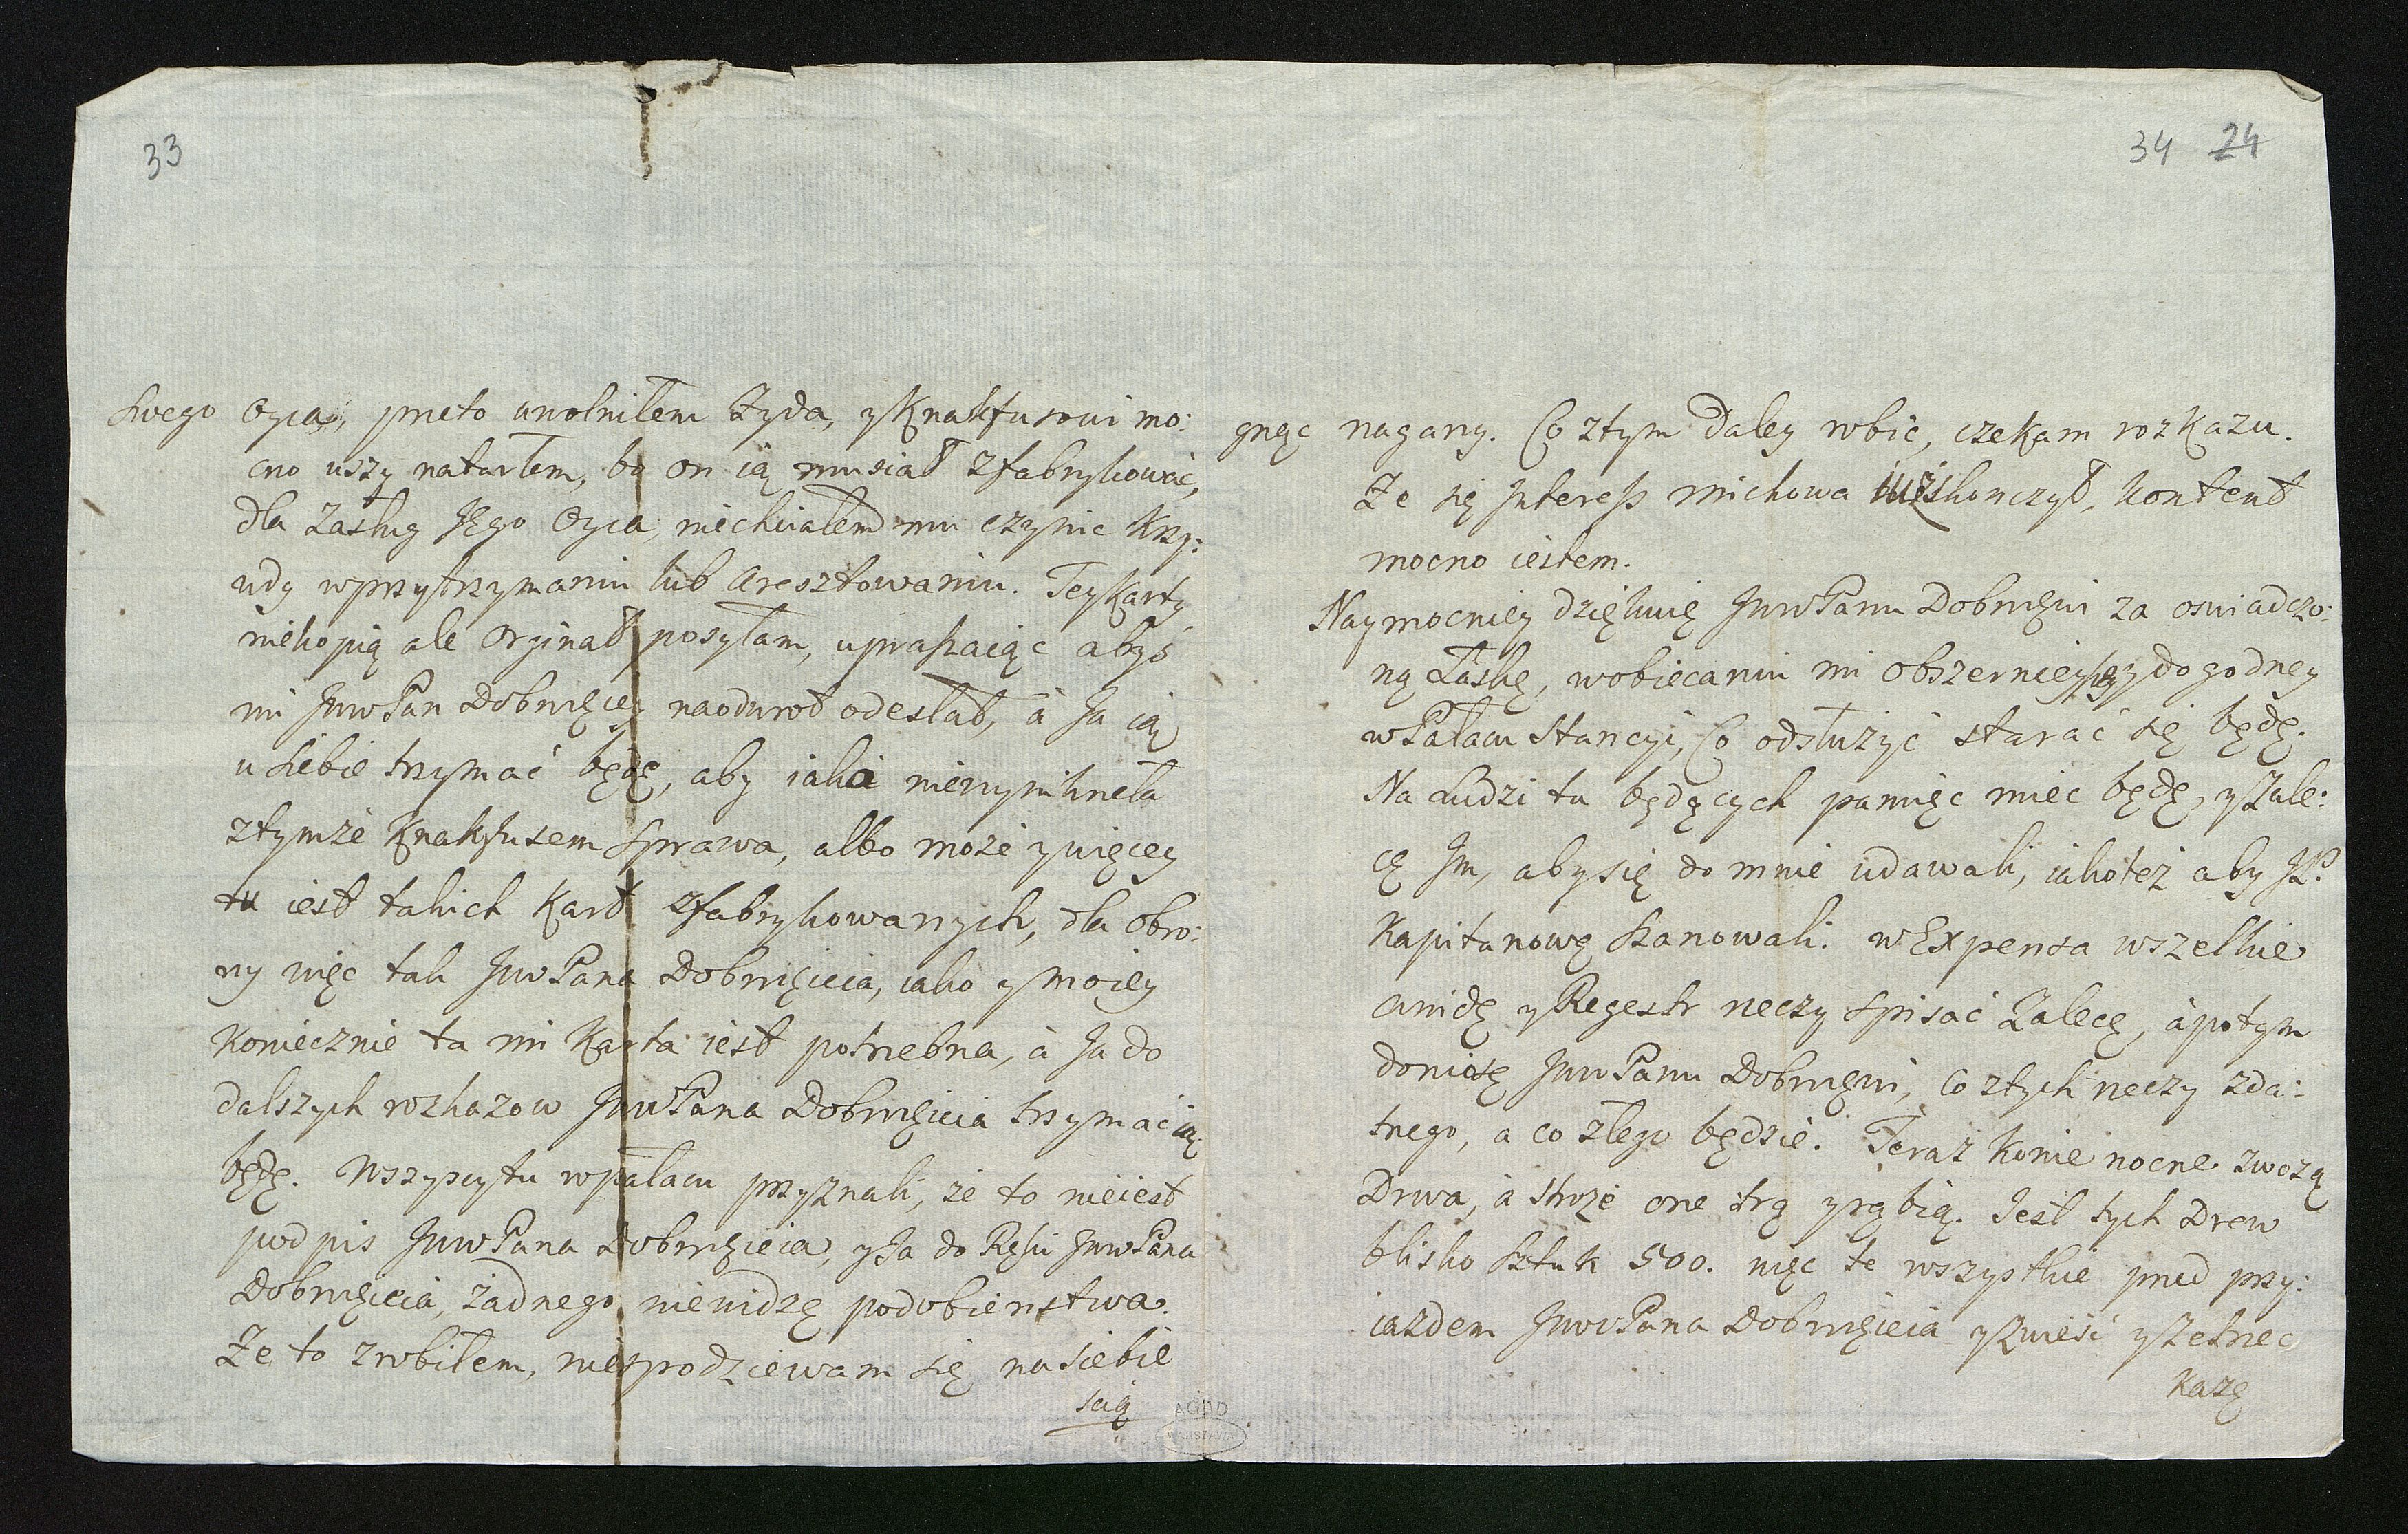 33
swego Oyca, przeto uwolniłem Żyda, y Knakfusowi mo:
cno uszy natarłem, bo on ią musiał zfabrykować,
dla zasług Jego Oyca, niechciałem mu czynic krzy:
udy w przytrzymaniu lub Aresztowaniu. Tey Karty
niekopią ale Orginał posyłam, upraszaiąc abyś
mi JmwPan Dobrdzięy naodwrot odesłał, à Ja ią
u siebie trzymać będę, aby iaka niewynikneła
ztymże Knakfusem Sprawa, albo może y więcey
tu iest takich Kart zfabrykowanych, dla obro:
ny więc tak JmwPana Dobrdzieia, iako y moiey
koniecznie ta mi Karta iest potrzebna, à Ja do
dalszych rozkazow JmwPana Dobrdzieia trzymać ią
będę. Wszyscy tu w pałacu przyznali, że to nieiest
podpis JmwPana Dobrdzieia, y Ja do Ręki JmwPana
Dobrdzieia, żadnego niewidzę podobienstwa.
Że to zrobiłem, niespodziewam się na siebie
scią
AGAD
WARSZAWA
34 24
gnąc nagany. Co ztym daley robić, czekam rozkazu.
Że się Interess Michowa iuż skonczył, kontent
mocno iestem.
Naymocniey dziękuię JmwPanu Dobrdziewi za oswiadczo:
ną Łaskę, w obiecaniu mi obszernieyszey y dogodney
w Pałacu Stancyi, Co odsłużyć starać się będę.
Na Ludzi tu będących pamięc miec będę, y Zale:
cę Im, aby się do mnie udawali, iako też aby JP.
Kapitanowę Szanowali. w Expensa wszelkie
wnidę y Regestr rzeczy spisać Zalecę, à potym
doniosę JmwPanu Dobrdziewi, Co ztych rzeczy zda:
tnego, a co złego będzie. Teraz Konie nocne zwożą
Drwa, à Stroże one trą y rąbią. Jest tych Drew
blisko Sztuk 500. więc te wszystkie przed przy:
iazdem JmwPana Dobrdzieia y zwieść y zetrzec
Każę